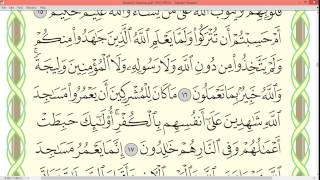 قُلُوبِهِمْ وَيَتُوبُ ٱللَّهُ عَلَىٰ مَن يَشَآءُ وَٱللَّهُ عَلِيمٌ حَكِيمٌ ١٥
أَمْ حَسِبْتُمْ أَن تُتْرَكُوا۟ وَلَمَّا يَعْلَمِ ٱللَّهُ ٱلَّذِينَ جَٰهَدُوا۟ مِنكُمْ
وَلَمْ يَتَّخِذُوا۟ مِن دُونِ ٱللَّهِ وَلَا رَسُولِهِۦ وَلَا ٱلْمُؤْمِنِينَ وَلِيجَةً
وَٱللَّهُ خَبِيرٌۢ بِمَا تَعْمَلُونَ ١٦ مَا كَانَ لِلْمُشْرِكِينَ أَن يَعْمُرُوا۟ مَسَٰجِدَ
ٱللَّهِ شَٰهِدِينَ عَلَىٰٓ أَنفُسِهِم بِٱلْكُفْرِ أُو۟لَٰٓئِكَ حَبِطَتْ
أَعْمَٰلُهُمْ وَفِى ٱلنَّارِ هُمْ خَٰلِدُونَ ١٧ إِنَّمَا يَعْمُرُ مَسَٰجِدَ